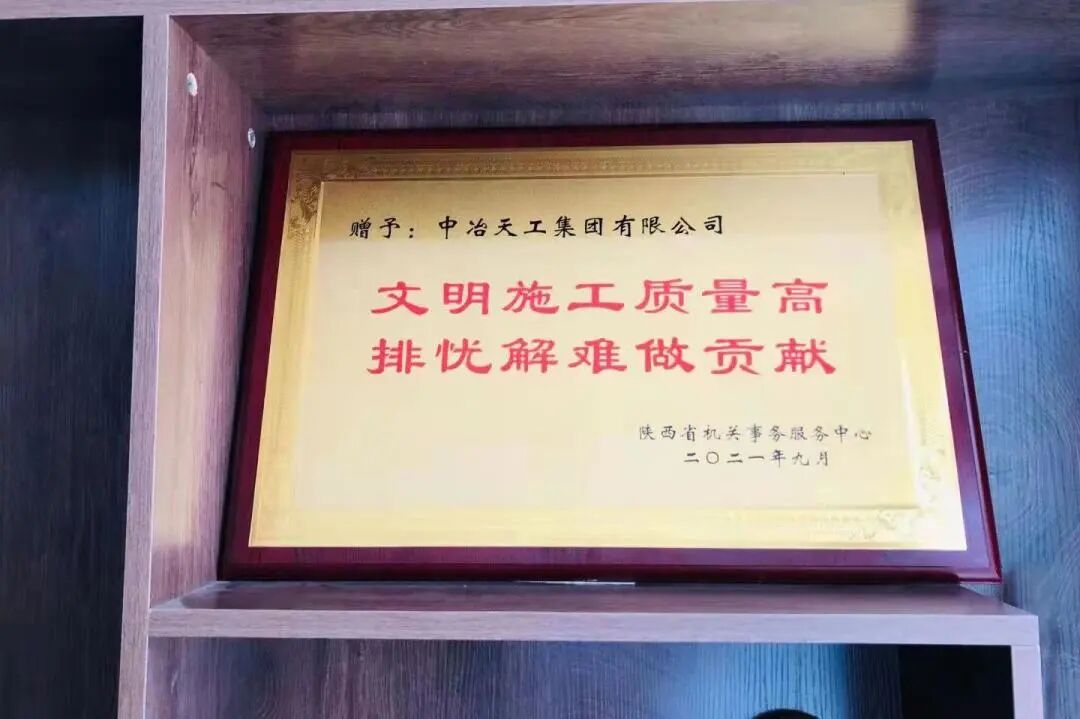 赠予：中冶天工集团有限公司
文明施工质量高
排忧解难做贡献
陕西省机关事务服务中心
二〇二一年九月